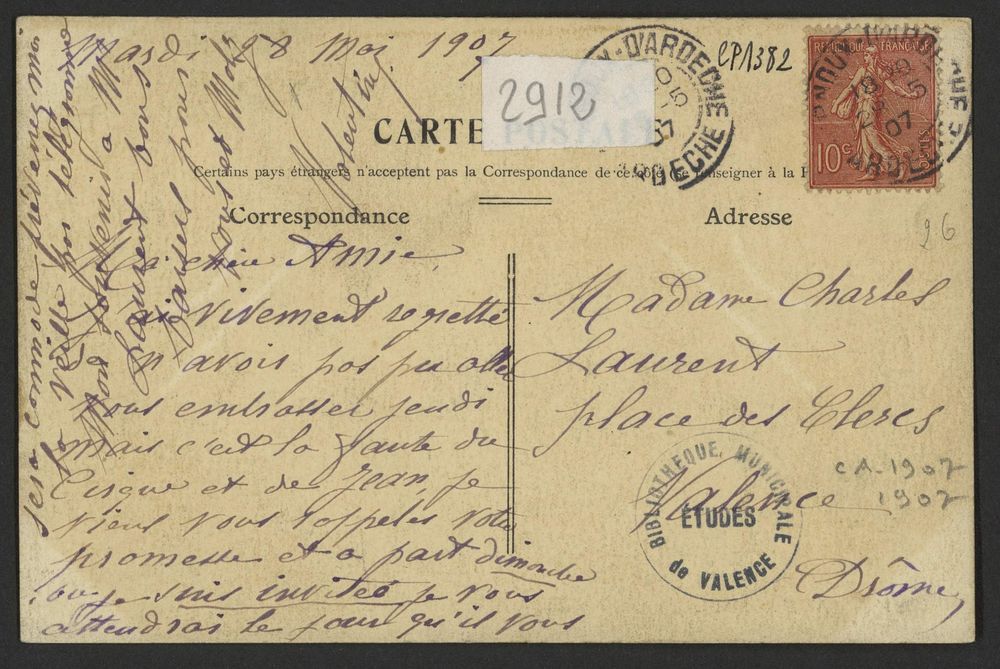 Mardi 28 Mai 1907
CP1382
2912
CARTE POSTALE
D'ARDECHE
07
ARDECHE
REPUBLIQUE FRANÇAISE
10c
POSTES
07
Certains pays étrangers n'acceptent pas la Correspondance de ce côté (Se renseigner à la
Correspondance
Adresse
26
Ma chère Amie,
J'ai vivement regretté
n'avoir pas pu aller
vous embrasser jeudi
mais c'est la faute du
Cirque et de Jean, je
viens vous rappeler votre
promesse et a part dimanche
où je suis invitée je vous
attendrai le jour qu'il vous
sera commode prévenez moi
la veille pas télégramme
Mon souvenir a M
Laurent bons
baisers pour
vous et
Valentine
Madame Charles
Laurent
place des Clercs
Valence
Drôme
CA-1907
1907
BIBLIOTHEQUE MUNICIPALE
ÉTUDES
de VALENCE